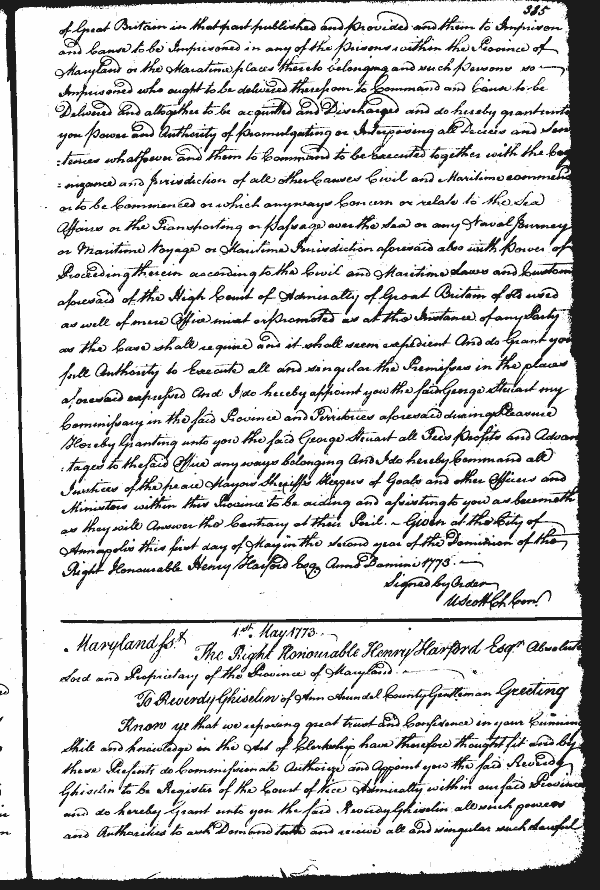 385
of Great Britain in that part published and provided and them to Imprison
and Cause to be Imprisoned in any of the prisons within the Province of
Maryland or the Maratime places thereto belonging and such persons so
Imprisoned who ought to be delivered therefrom to Command and Cause to be
Delivered and altogether to be acquitted and Discharged and do hereby grant unto
you power and Authority of promulgating or Interposing all Decrees and Sen
:tences whatsoever and them to Command to be Executed together with the Cog
:nizance and Jurisdiction of all other Causes Civil and Maritime commenc
or to be Commenced or which anyways Concern or relate to the Sea
Affairs or the Transporting or passage over the Sea or any Naval Journey
or Maritime Voyage or Maritime Jurisdiction aforesaid also with power of
Proceeding therein according to the Civil and Maritime Laws and Customs
aforesaid of the High Court of Admiralty of Great Britain of old used
as well of mere Office mixt or promoted as at the Instance of any Party
as the Case shall require and it shall seem expedient And do Grant you
full Authority to Execute all and singular the Premisses in the places
aforesaid expressed And I do hereby appoint you the said George Steuart my
Commissary in the said Province and Territories aforesaid during Pleasure
Hereby Granting unto you the said George Steuart all Fees Profits and Advan
:tages to the said Office any ways belonging And I do hereby Command all
Justices of the peace Mayors Sheriffs Keepers of Goals and other Officers and
Ministers within this Province to be aiding and assisting to you as becometh
as they will Answer the Contrary at their Peril. Given at the City of
Annapolis this first day of May in the second year of the Dominion of the
Right Honourable Henry Harford Esqr. Anno Domini 1773.
Signed by Order
U Scott Ch. Con.
1st. May 1773
Maryland ss.t The Right Honourable Henry Harford Esqr. Absolute
Lord and Proprietary of the Province of Maryland
To Reverdy Ghiselin of Ann Arundel County Gentleman Greeting
Know ye that we reposing great trust and Confidence in your Cunning
Skill and knowledge in the Art of Clerkship have therefore thought fit and by
these Presents do Commissionate Authorize and Appoint you the said Reverdy
Ghiselin to be Register of the Court of Vice Admiralty within our said Province
and do hereby Grant unto you the said Reverdy Ghiselin all such powers
and Authorities to ask Demand take and receive all and singular such lawful